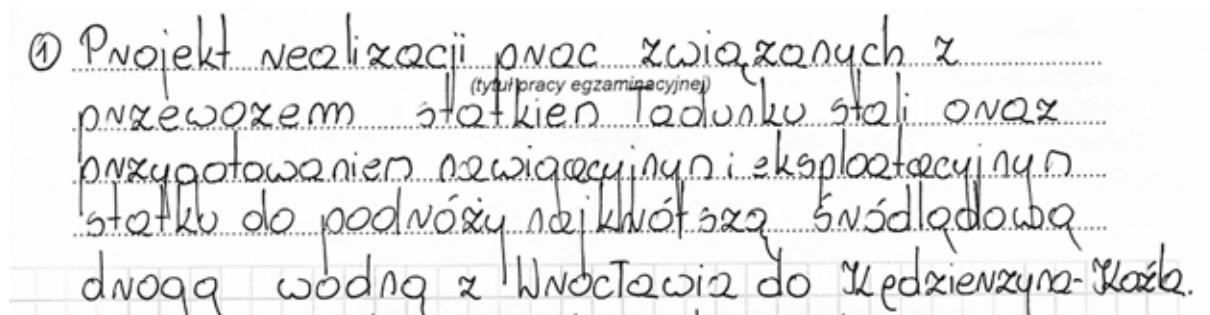 ① Projekt realizacji prac związanych z
(tytuł pracy egzaminacyjnej)
przewozem statkiem ładunku stali oraz
przygotowaniem nawigacyjnym i eksploatacyjnym
statku do podróży najkrótszą śródlądową
drogą wodną z Wrocławia do Kędzierzyna-Koźla.